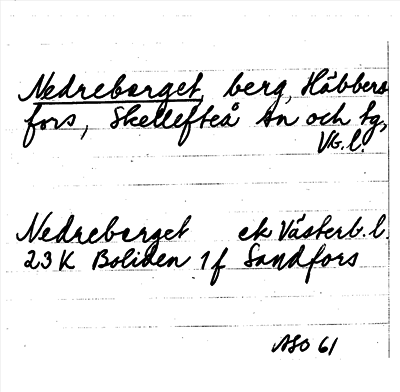 Nedreberget, berg, Häbbers
fors, Skellefteå sn och tg,
Vb. l.
Nedreberget ek Västerb. l.
23K Boliden 1f Sandfors
ASO 61